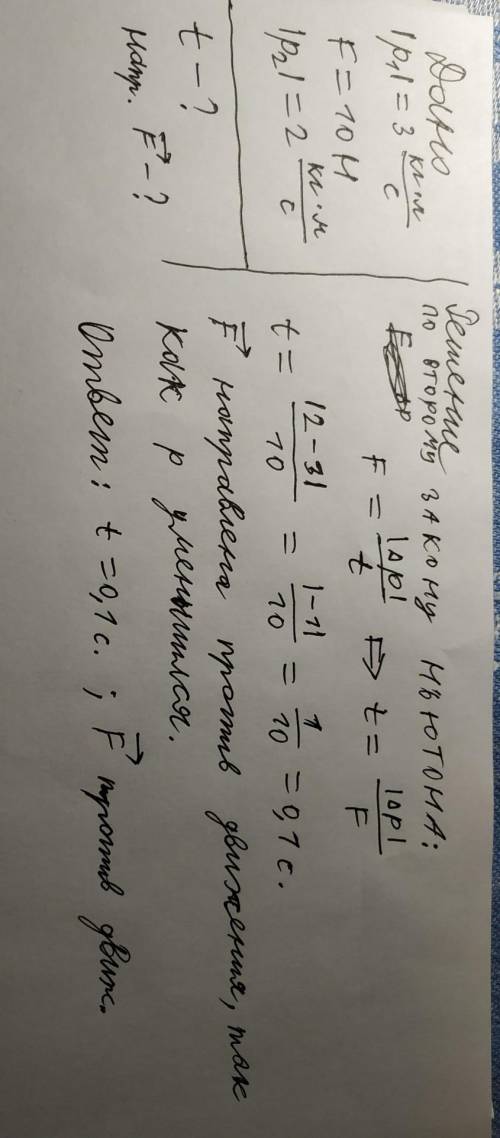 Дано
|p₁| = 3 кг·м/с
F = 10 Н
|p₂| = 2 кг·м/с
t – ?
напр. F⃗ – ?
Решение
по второму закону Ньютона:
F = |Δp|/t => t = |Δp|/F
t = |2-3|/10 = |-1|/10 = 1/10 = 0,1 с.
F⃗ направлена против движения, так
как p уменшился.
Ответ: t = 0,1 с. ; F⃗ против движ.